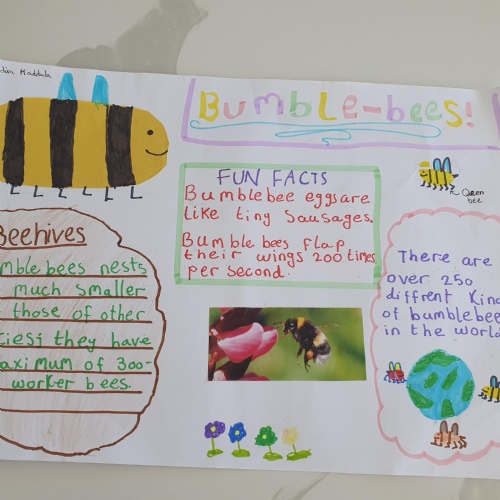 Maddula
Bumble-bees!
Queen
bee
FUN FACTS
Bumblebee eggs are
like tiny sausages.
Bumble bees flap
their wings 200 times
per second.
Beehives
mble bees nests
much smaller
those of other
cies; they have
aximum of 300-
worker bees.
There are
over 250
diffrent Kind
of bumblebee
in the world